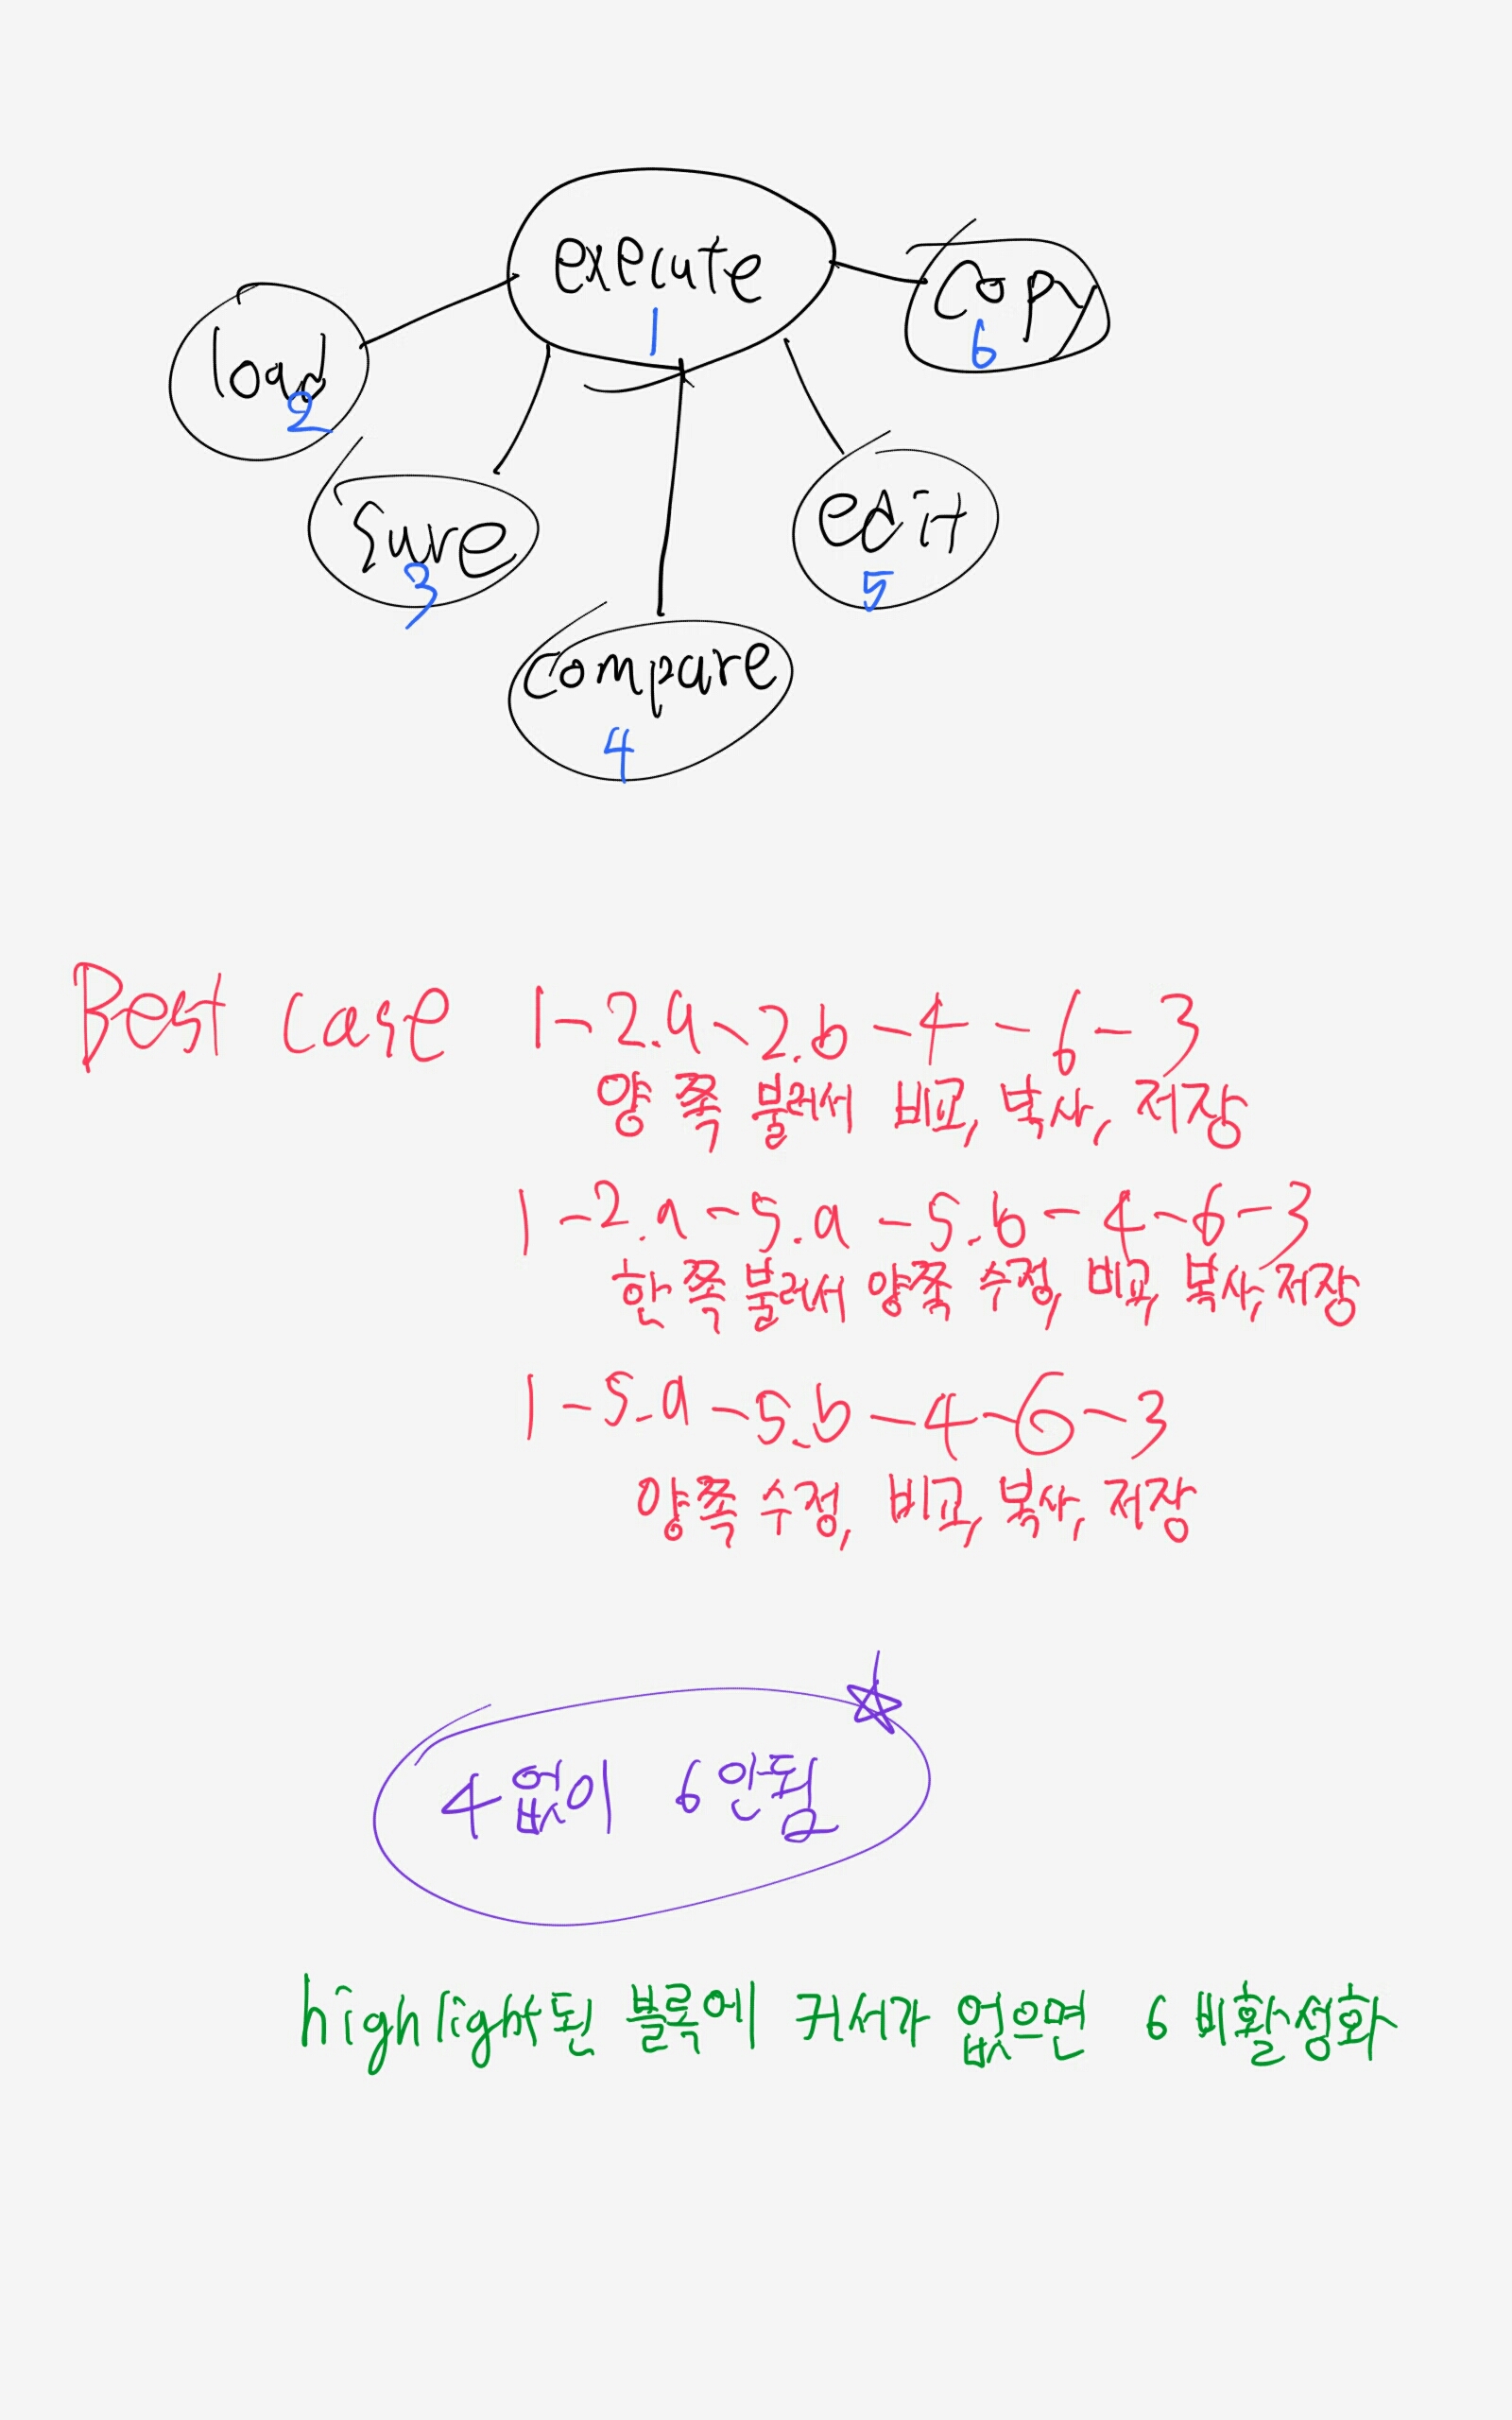 execute
1
copy
6
load
2
save
3
edit
5
compare
4
Best case 1-2.a-2.b-4-6-3
양쪽 불러서 비교, 복사, 저장
1-2.a-5.a-5.b-4-6-3
한쪽 불러서 양쪽 수정, 비교, 복사, 저장
1-5.a-5.b-4-6-3
양쪽 수정, 비교, 복사, 저장
4 없이 6 안됨
highlight된 블록에 커서가 없으면 6 비활성화